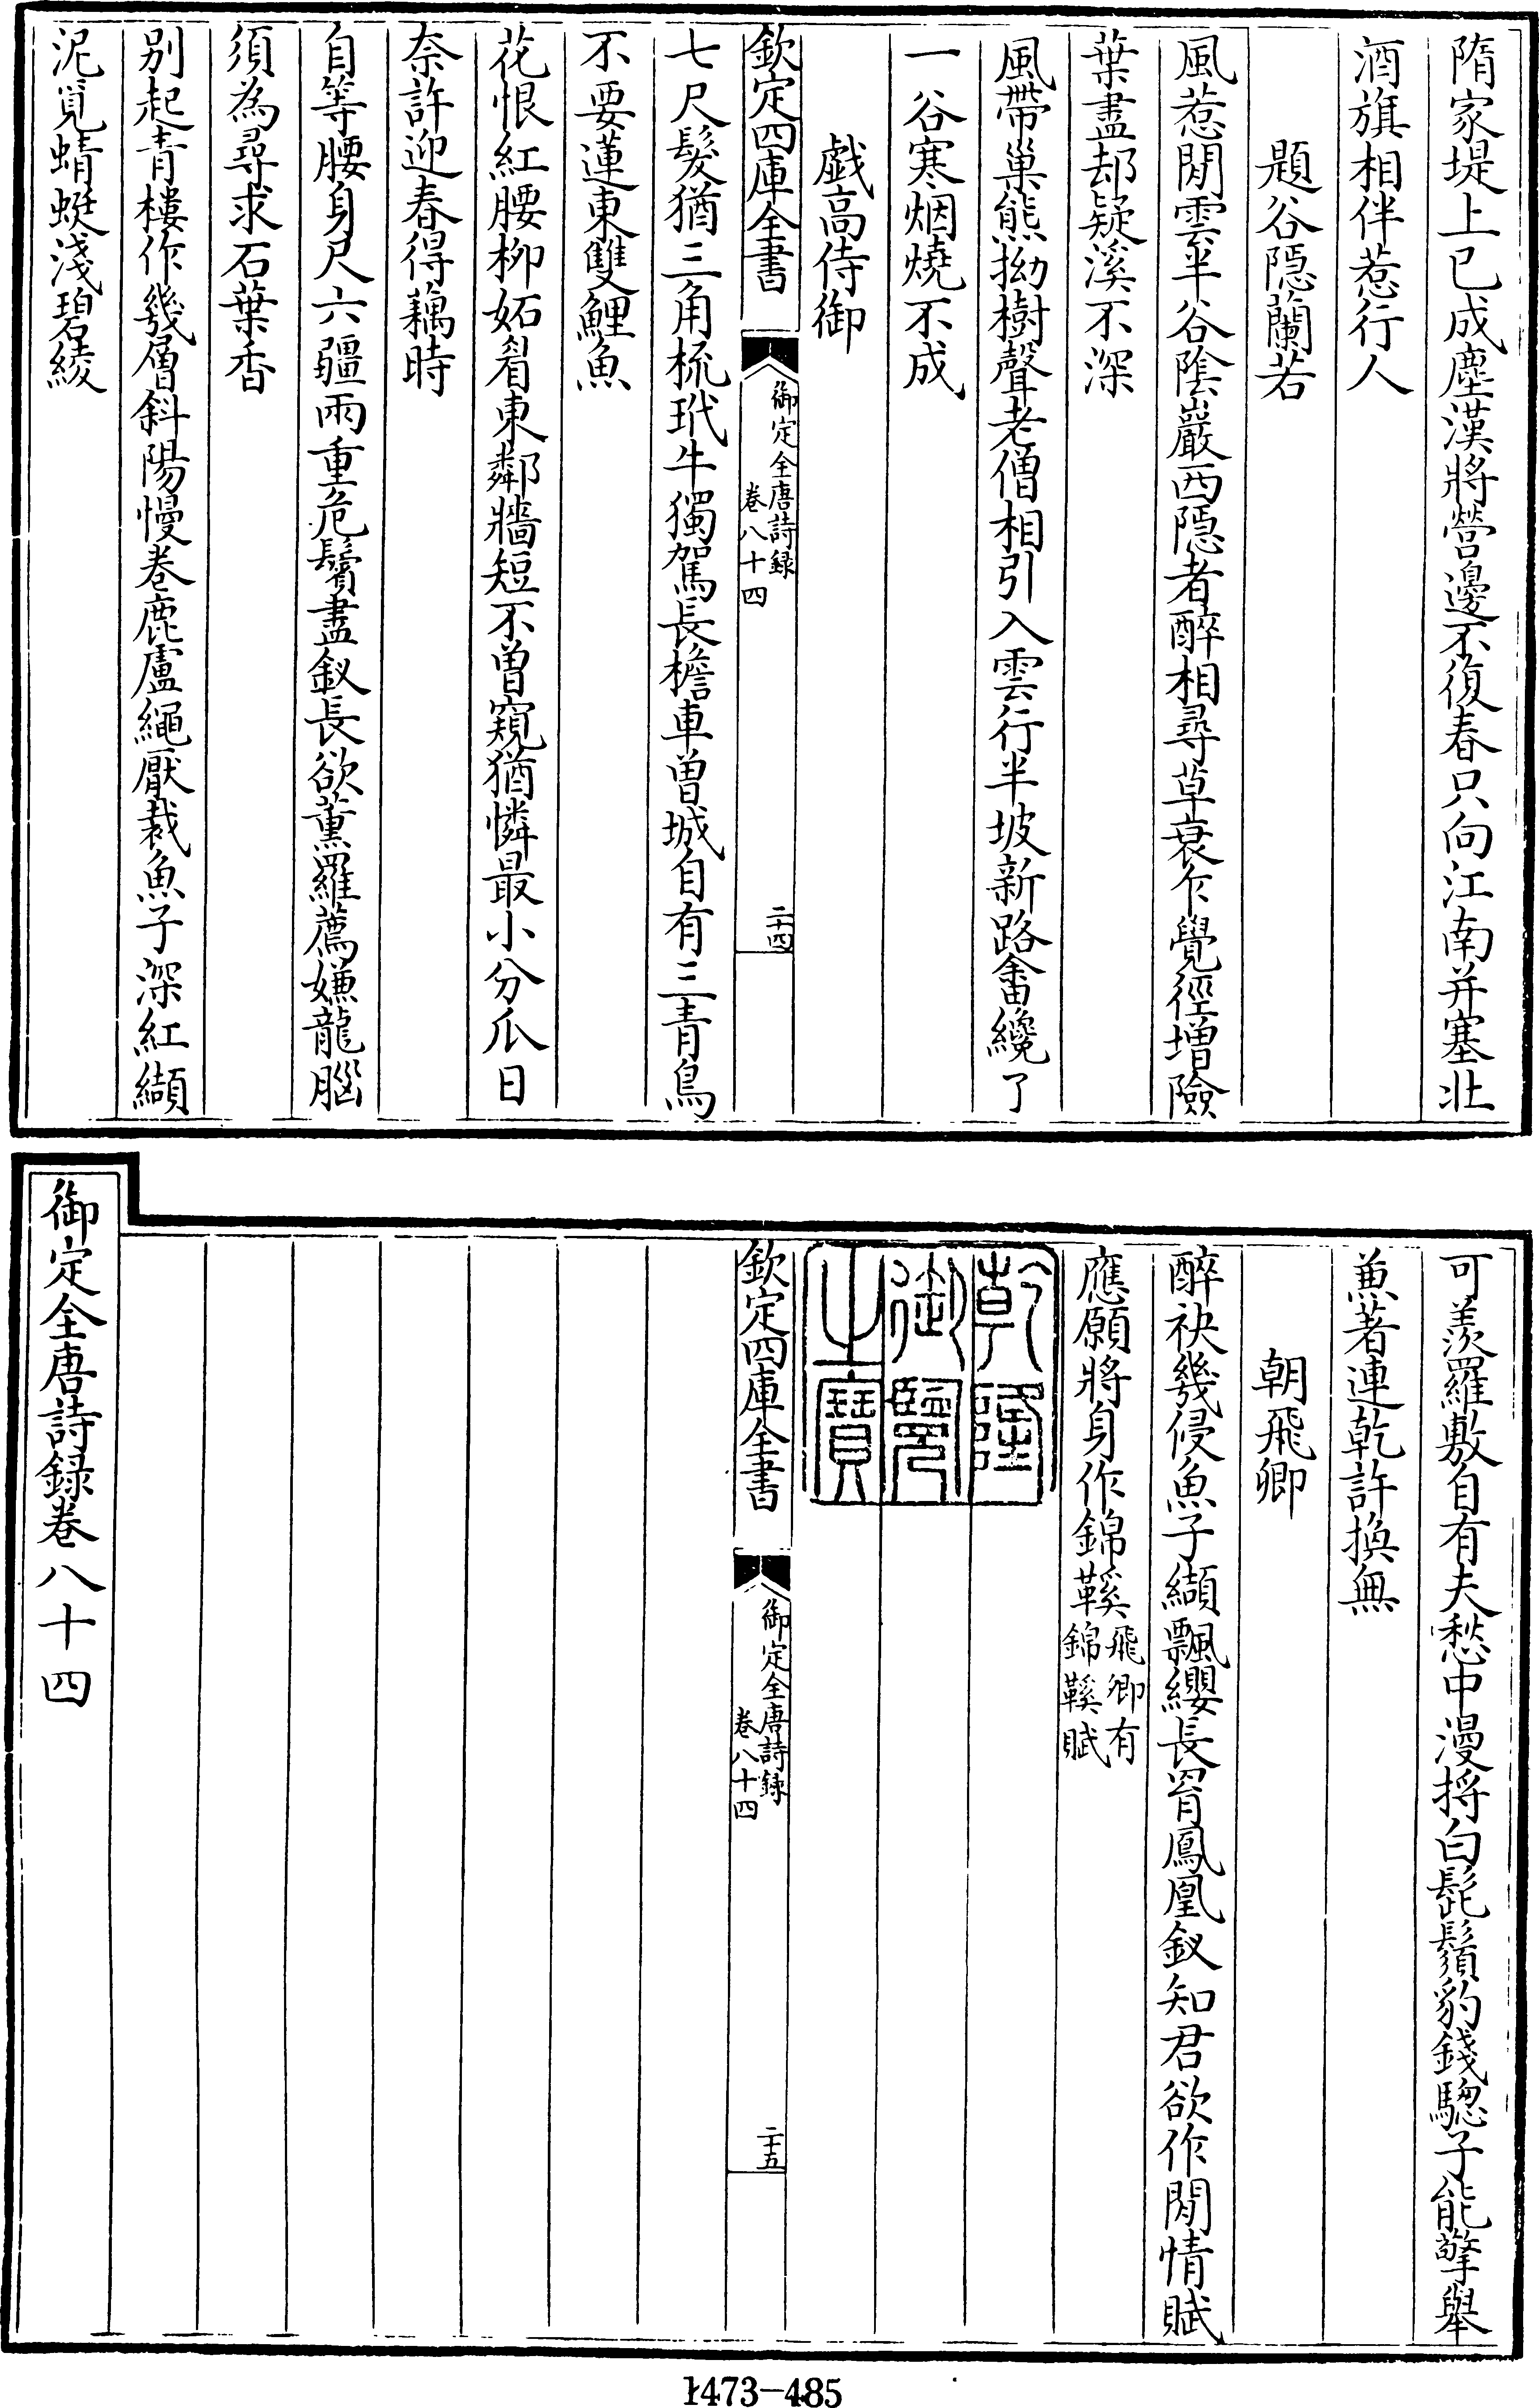 隋家堤上已成塵漢將營邊不復春只向江南并塞北
酒旗相伴惹行人
題谷隠蘭若
風惹閒雲半谷陰巖西隠者醉相尋草衰乍覺徑増險
葉盡却疑溪不深
風帶巢熊拗樹聲老僧相引入雲行半坡新路畬纔了
一谷寒烟燒不成
戯高侍御
欽定四庫全書
御定全唐詩録
卷八十四
二十四
七尺髮猶三角梳玳牛獨駕長檐車曽城自有三青鳥
不要蓮東雙鯉魚
花恨紅腰柳妬眉東鄰牆短不曽窺猶憐最小分瓜日
奈許迎春得藕時
自等腰身尺六疆兩重危鬢盡釵長欲薫羅薦嫌龍腦
須為尋求石葉香
别起青樓作幾層斜陽慢卷鹿盧繩厭裁魚子深紅纈
泥覓蜻蜓淺碧綾
可羨羅敷自有夫愁中漫捋白髭鬚豹錢驄子能擎舉
兼著連乾許換無
朝飛卿
醉袂幾侵魚子纈飄纓長罥鳳凰釵知君欲作閒情賦
應願將身作錦鞵飛卿有
錦鞵賦
乾隆
御覽
之寶
欽定四庫全書
御定全唐詩録
卷八十四
二十五
御定全唐詩録卷八十四
1473-485